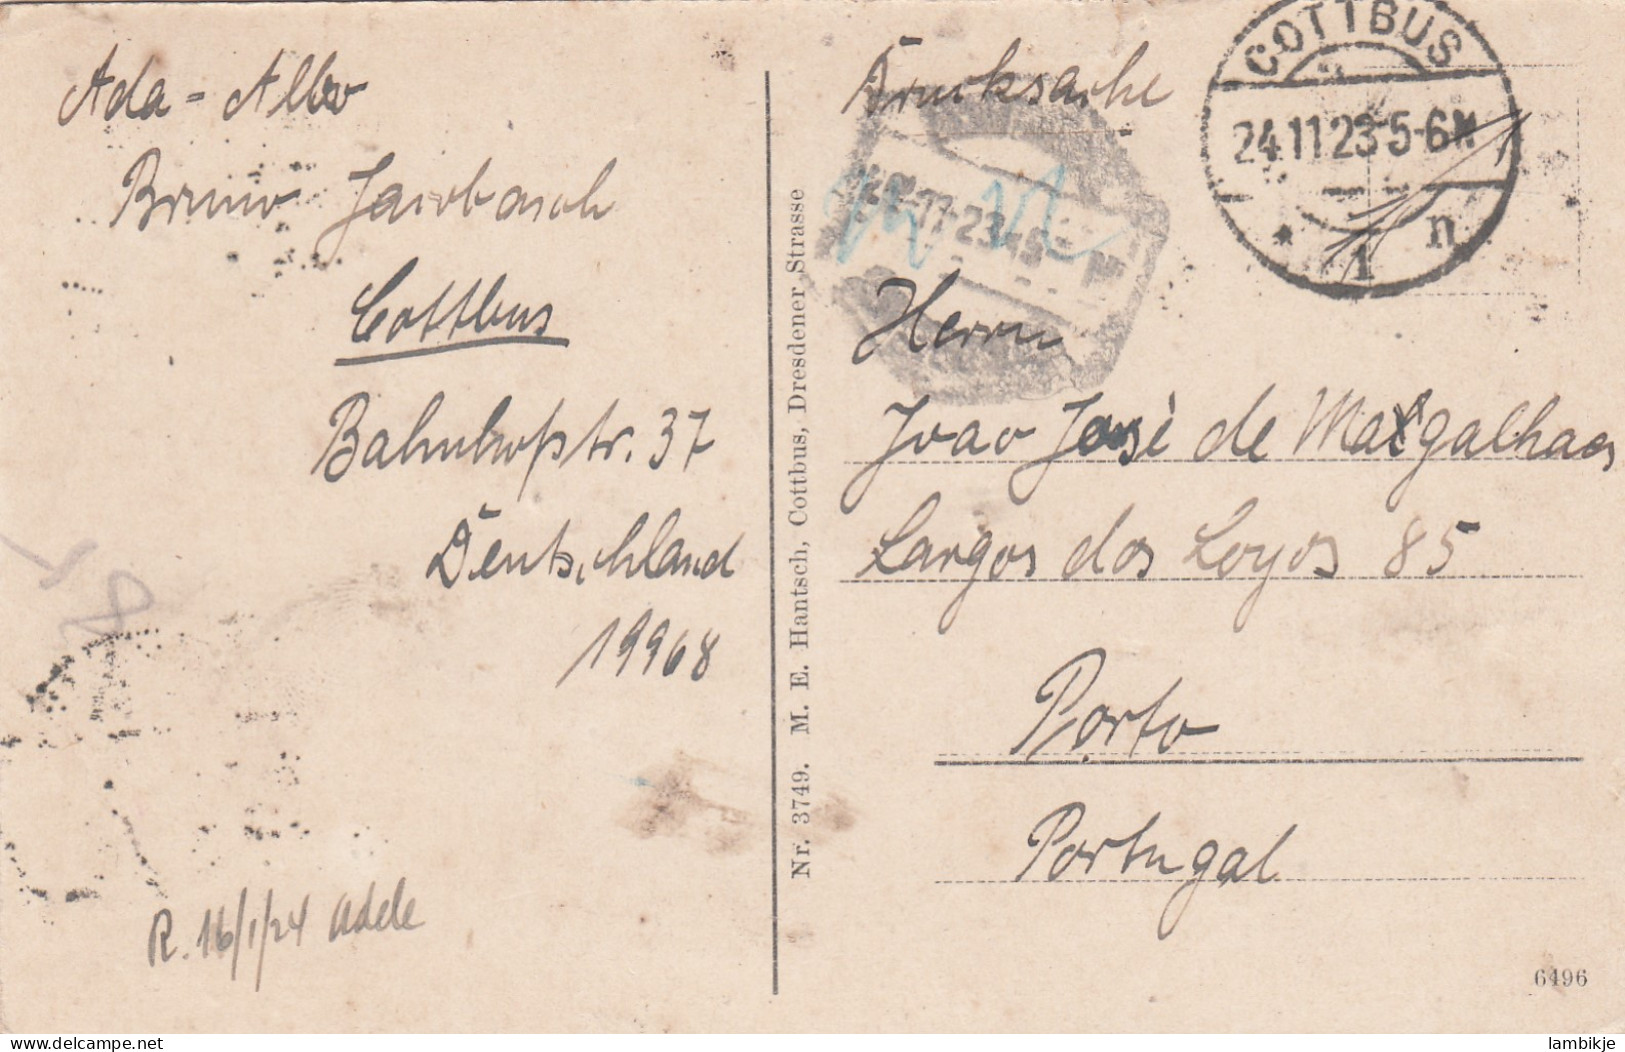 Ada - Albo
Bruno Jacobasch
Cottbus
Bahnhofstr. 37
Deutschland
19968
R. 16/1/24 Adele
Nr. 3749. M. E. Hantsch, Cottbus, Dresdener Strasse
Drucksache
COTTBUS
24.11.23 5-6 N
* 1 n
Herrn
Joao José de Magalhaes
Largos dos Loyos 85
Porto
Portugal
6496
© www.delcampe.net
lambikje